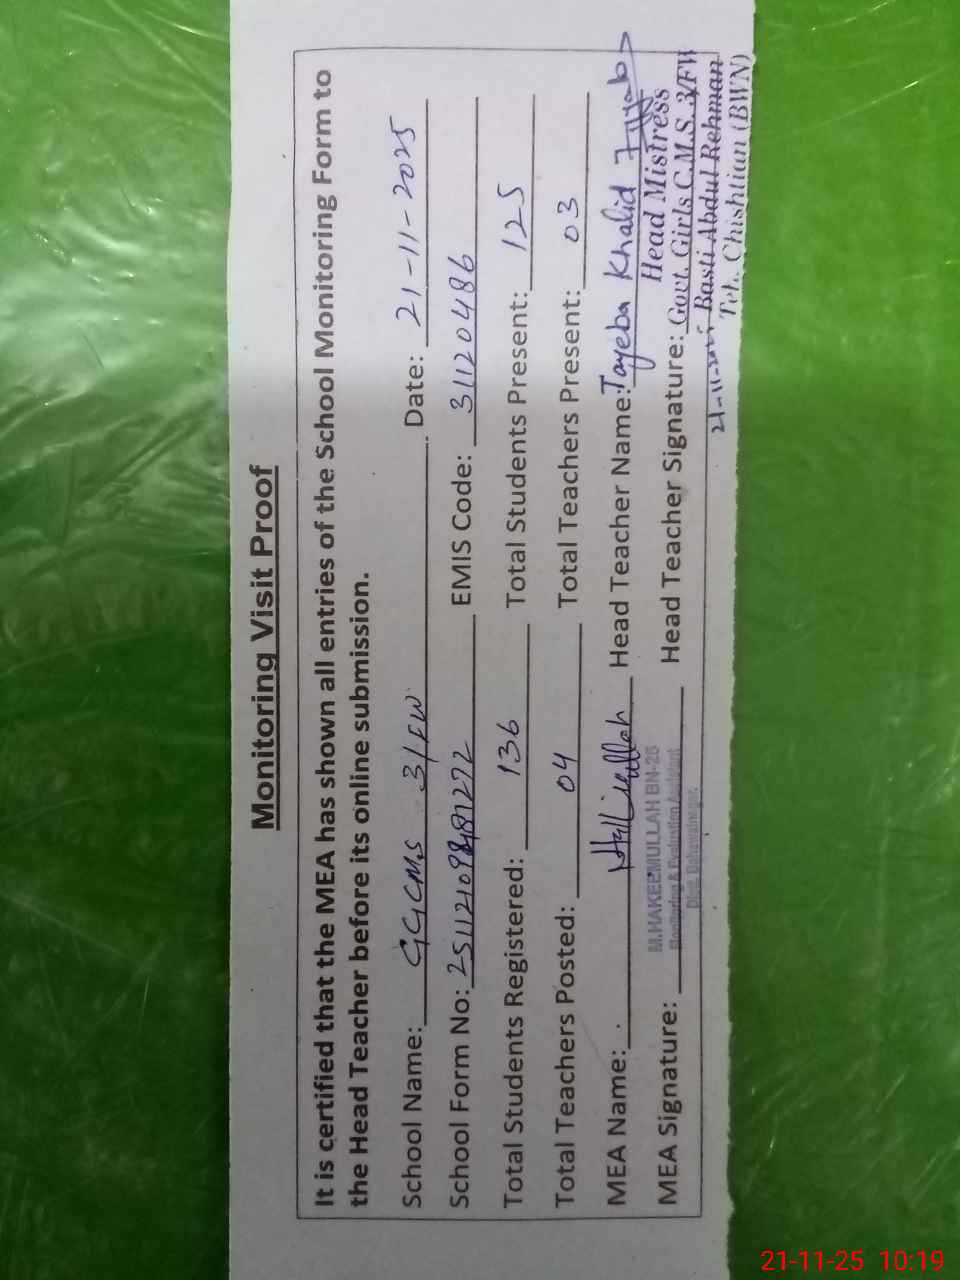 Monitoring Visit Proof
It is certified that the MEA has shown all entries of the School Monitoring Form to
the Head Teacher before its online submission.
School Name: GGCMS 3/FW Date: 21-11-2025
School Form No: EMIS Code: 31120486
Total Students Registered: 136 Total Students Present: 125
Total Teachers Posted: 04 Total Teachers Present: 03
MEA Name: Head Teacher Name: Tayeba Khalid
M.HAKEEMULLAH BN-26
Monitoring & Evaluation Assistant
Distt. Bahawalnagar.
MEA Signature: Head Teacher Signature:
Head Mistress
Govt. Girls C.M.S. 3/FW
Basti Abdul Rehman
Teh. Chishtian (BWN)
21-11-2025
21-11-25 10:19